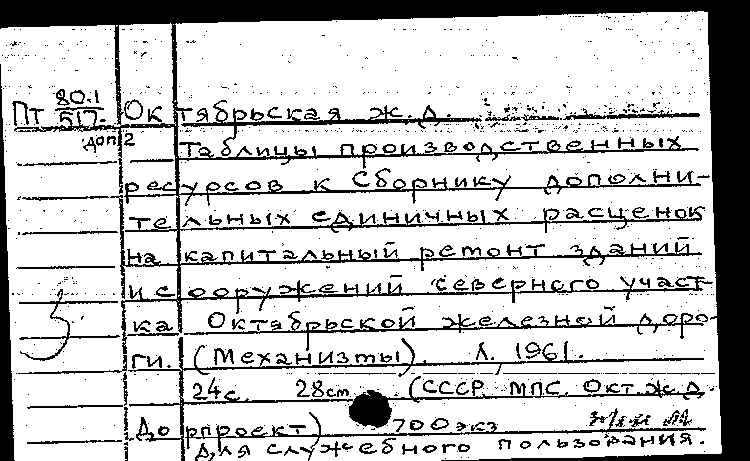 Пт 80.1/517- Октябрьская ж.д.
доп 2 Таблицы производственных
ресурсов к Сборнику дополни-
тельных единичных расценок
на капитальный ремонт зданий
и сооружений северного участ-
ка Октябрьской железной доро-
ги. (Механизмы). Л., 1961.
24с. 28см. (СССР. МПС. Окт.ж.д.
Дорпроект) 700экз
Для служебного пользования.